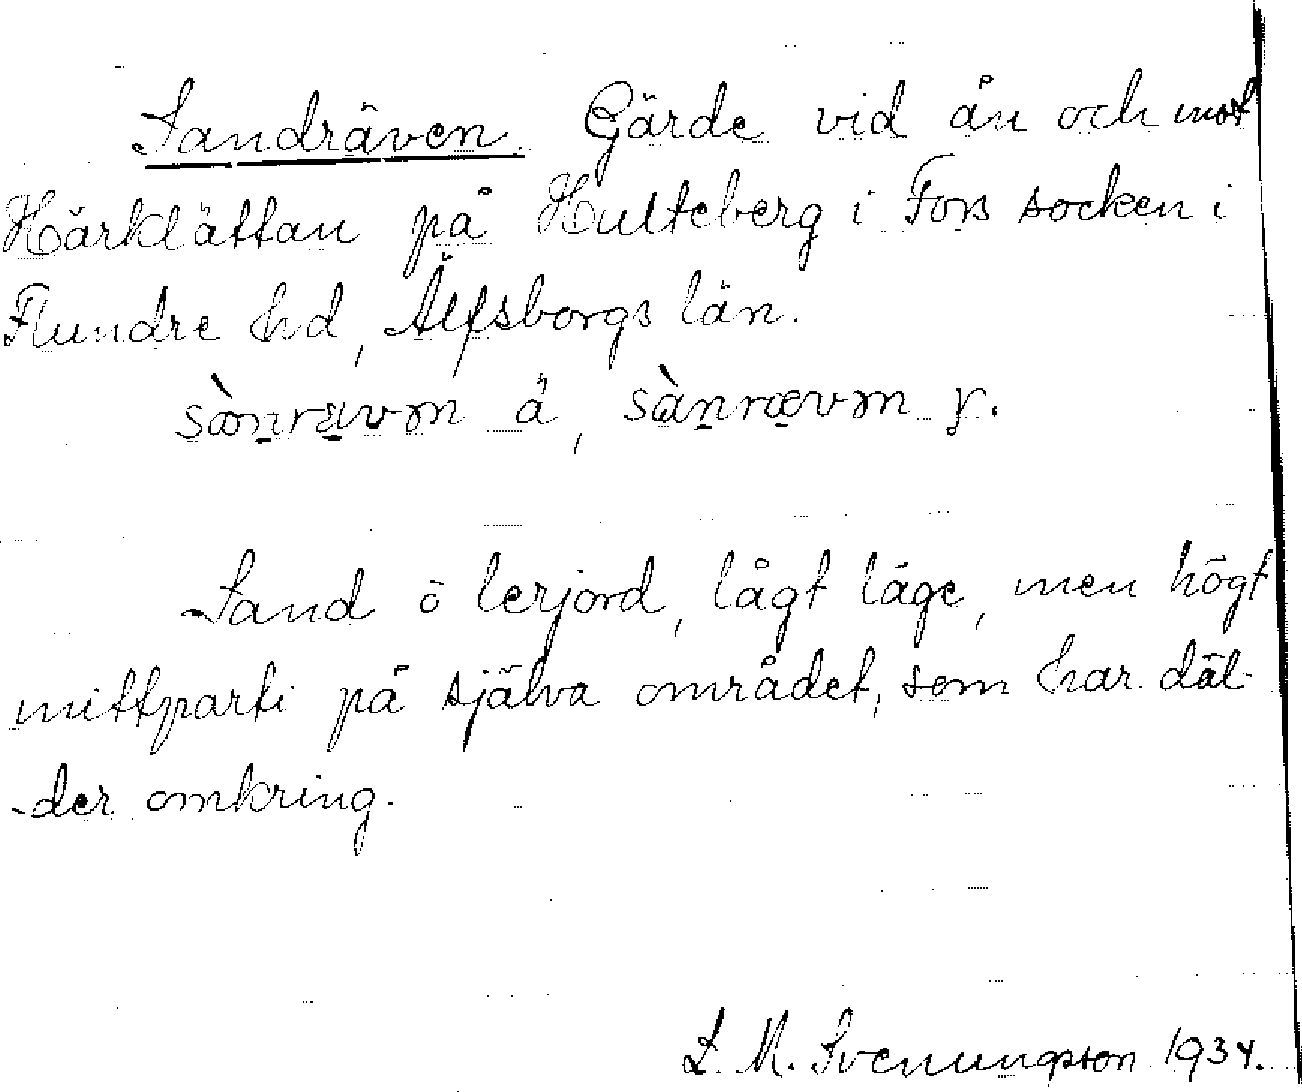 Sandräven. Gärde vid ån och mot
Härklättan på Hulteberg i Fors socken i
Flundre hd, Älfsborgs län.
sànrävm ä, sànrævm y.
Sand ö lerjord, lågt läge, men högt
mittparti på själva området, som har däl-
-der omkring.
L. M. Svenungsson 1934.